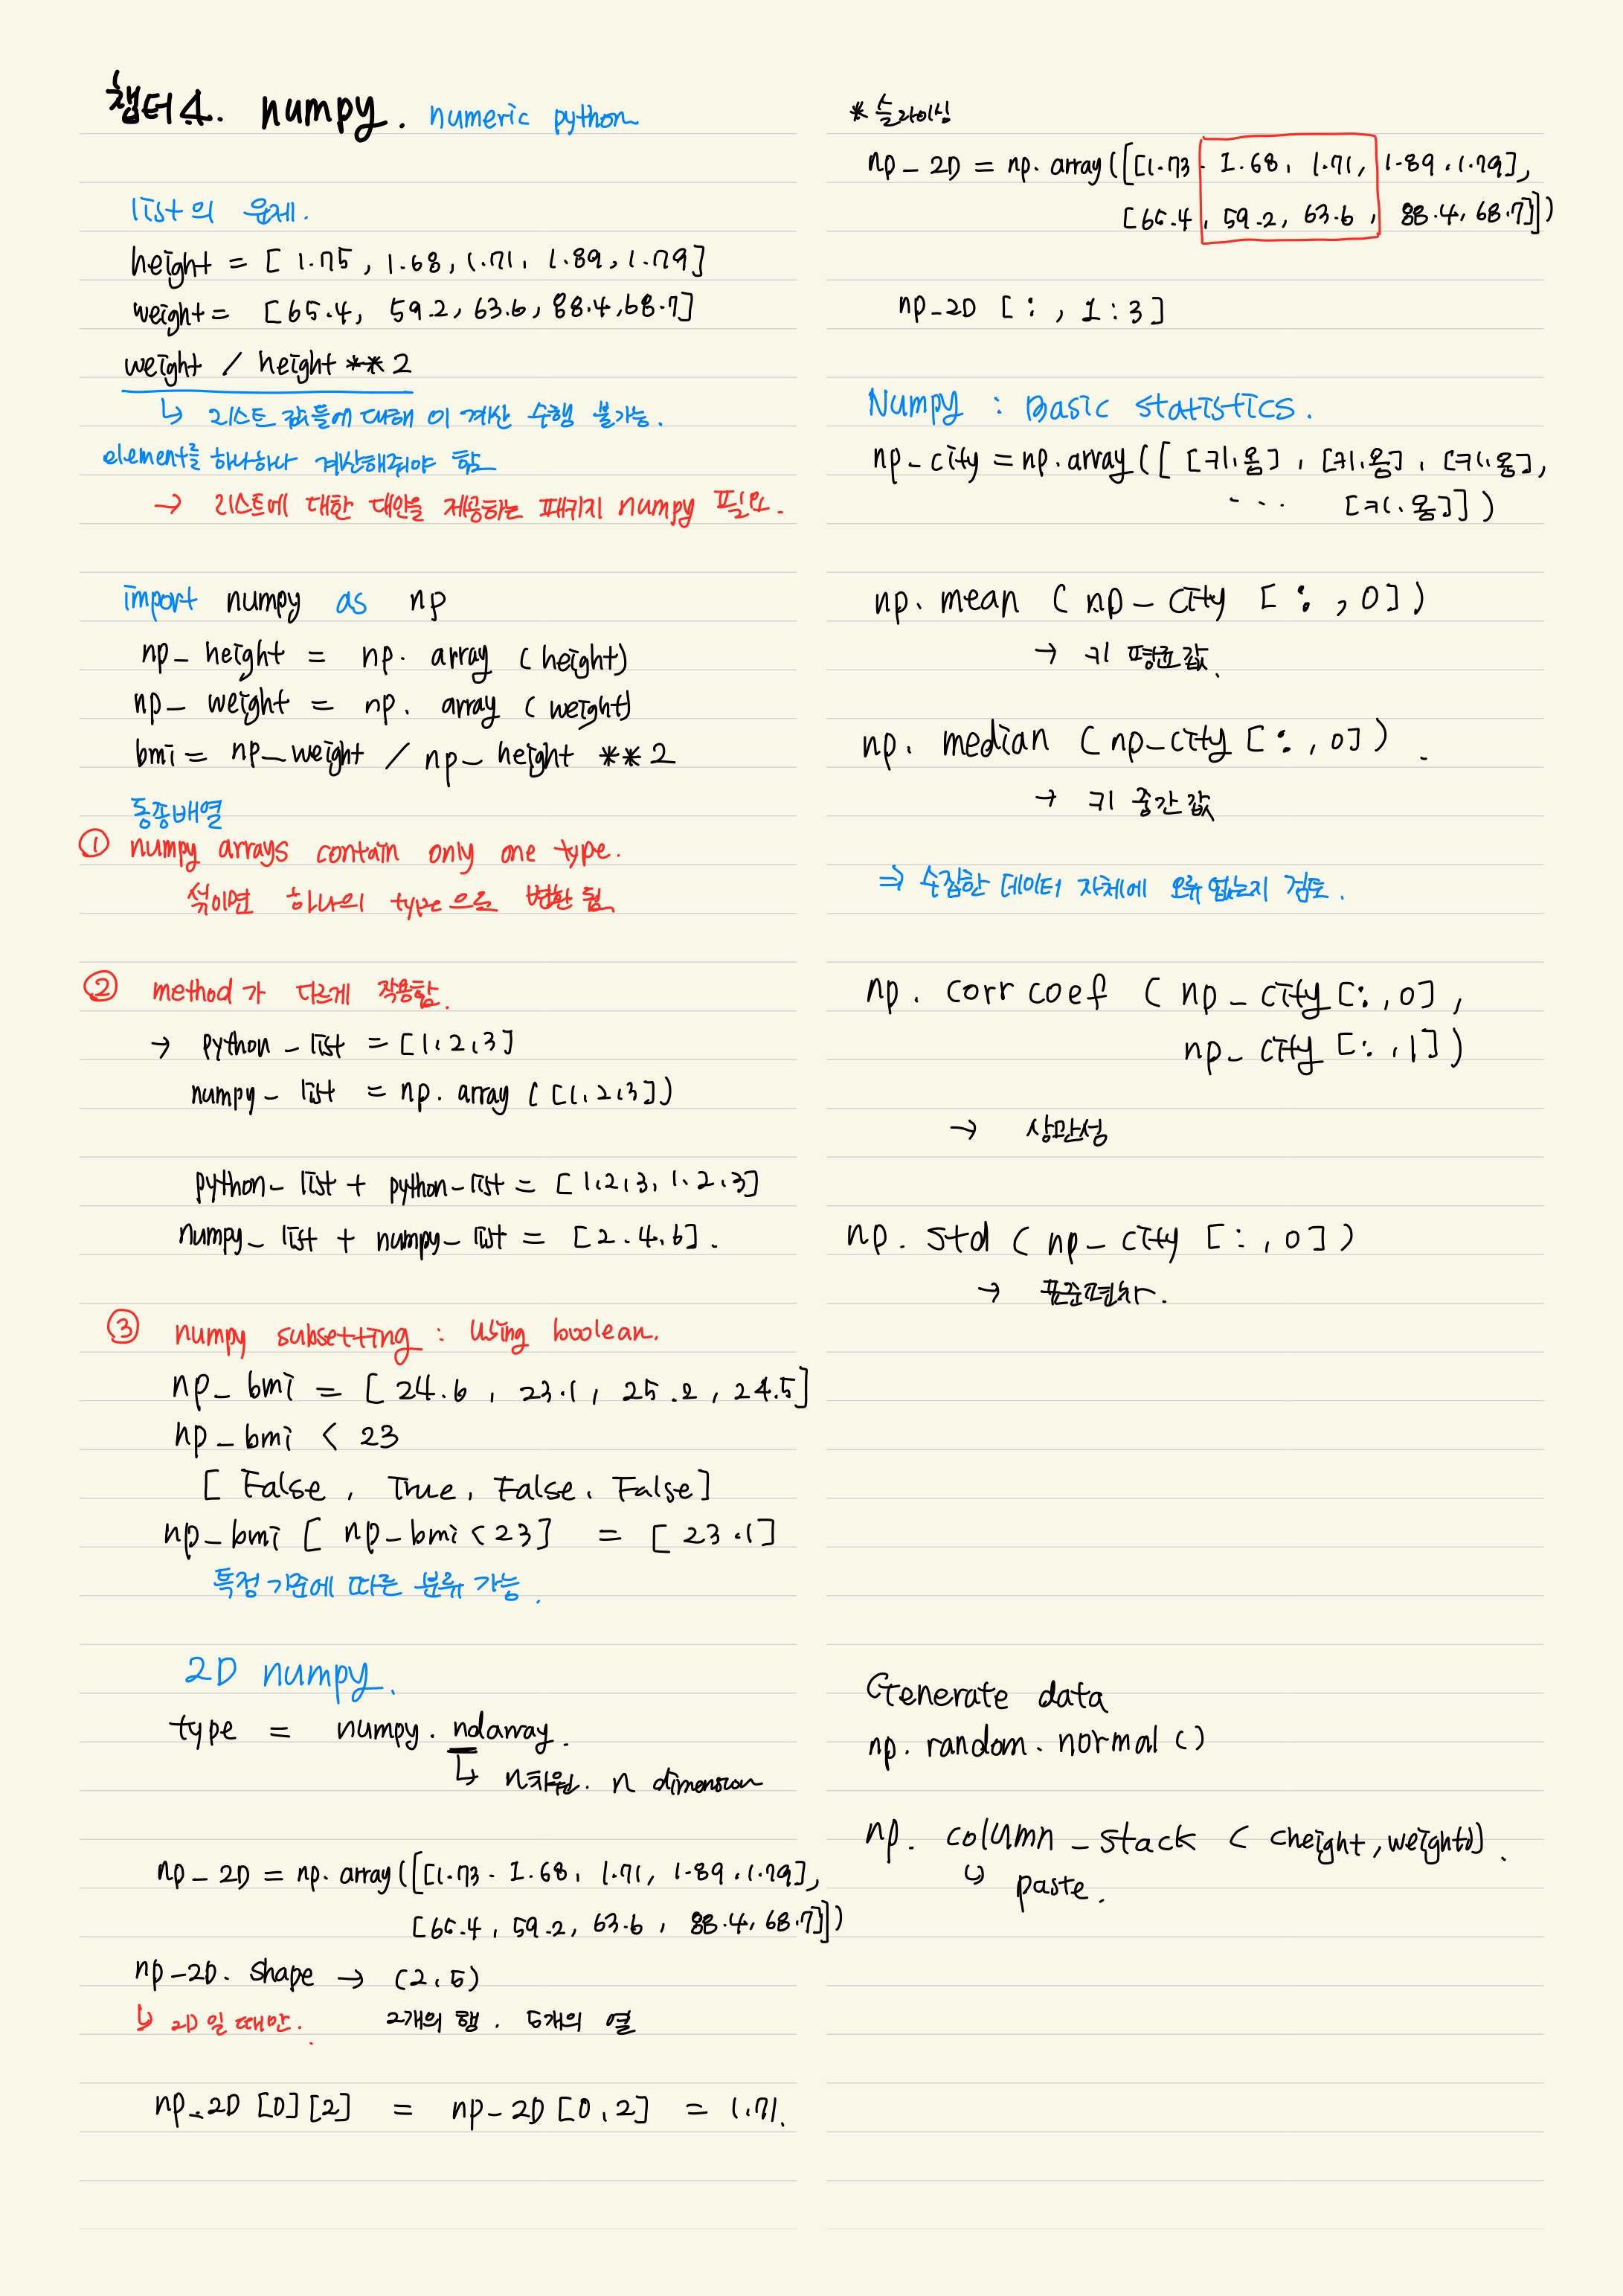 챕터4. numpy. numeric python
list의 문제.
height = [ 1.75, 1.68, 1.71, 1.89, 1.79]
weight = [65.4, 59.2, 63.6, 88.4, 68.7]
weight / height ** 2
↳ 리스트 값들에 대해 이 계산 수행 불가능.
element를 하나하나 계산해줘야 함
→ 리스트에 대한 대안을 제공하는 패키지 numpy 필요.
import numpy as np
np_height = np. array (height)
np_ weight = np. array (weight)
bmi = np_weight / np_ height ** 2
동종배열
① numpy arrays contain only one type.
섞이면 하나의 type으로 변환 됨
② method가 다르게 작용함.
→ python_list = [1, 2, 3]
numpy_ list = np. array ([1, 2, 3])
python_ list + python_list = [1, 2, 3, 1, 2, 3]
numpy_ list + numpy_ list = [2. 4. 6].
③ numpy subsetting : Using boolean.
np_bmi = [24.6, 23.1, 25.2, 24.5]
np_bmi < 23
[ False, True, False, False]
np_bmi [ np_bmi < 23] = [23.1]
특정 기준에 따른 분류 가능.
2D numpy.
type = numpy. ndarray.
↳ n차원. n dimension
np_2D = np. array ([[1.73. 1.68, 1.71, 1.89, 1.79],
[65.4, 59.2, 63.6, 88.4, 68.7]])
np_2D. shape → (2, 5)
↳ 2D일 때만. 2개의 행. 5개의 열
np_2D [0][2] = np_2D [0, 2] = 1.71.
* 슬라이싱
np_2D = np. array ([[1.73. 1.68, 1.71, 1.89, 1.79],
[65.4, 59.2, 63.6, 88.4, 68.7]])
np_2D [:, 1:3]
Numpy : Basic statistics.
np_city = np. array ([ [키, 몸], [키, 몸], [키, 몸],
... [키, 몸]])
np. mean (np_city [:, 0])
→ 키 평균값.
np. median (np_city [:, 0]).
→ 키 중간값
⇒ 수집한 데이터 자체에 오류 없는지 검토.
np. corrcoef (np_city [:, 0],
np_city [:, 1])
→ 상관성
np. std (np_city [:, 0])
→ 표준편차.
Generate data
np. random. normal ()
np. column_stack ((height, weight)).
↳ paste.